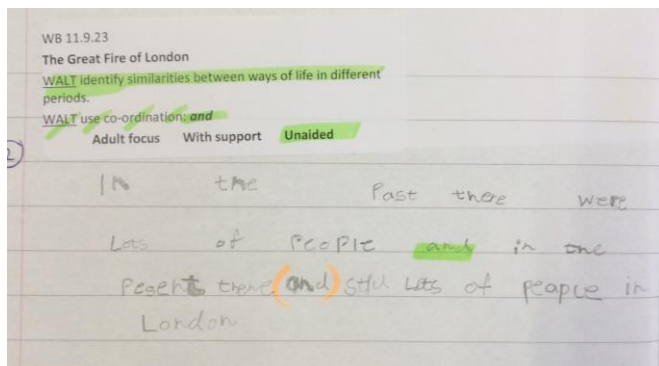 WB 11.9.23
The Great Fire of London
WALT identify similarities between ways of life in different
periods.
WALT use co-ordination: and
Adult focus With support Unaided
In the Past there were
Lots of PeoPle and in the
Pesent there (and) still Lots of peaple in
London